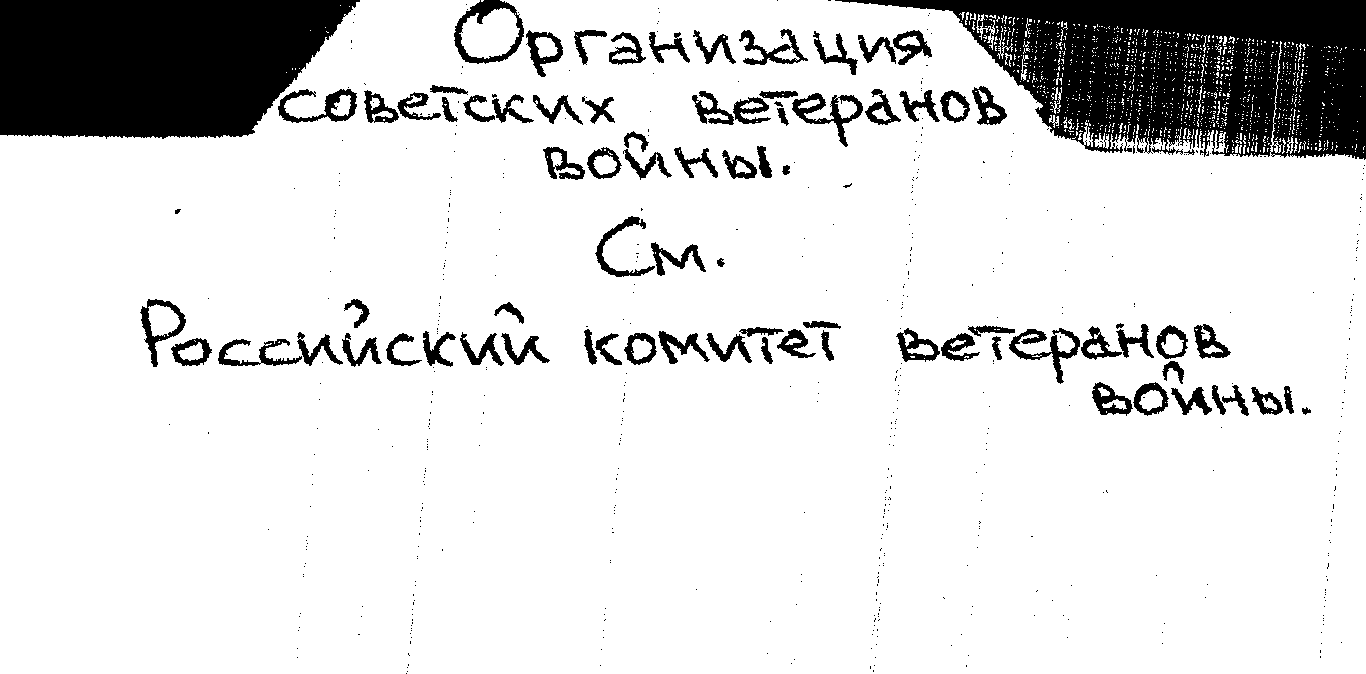 Организация
советских ветеранов
войны.
См.
Российский комитет ветеранов
войны.